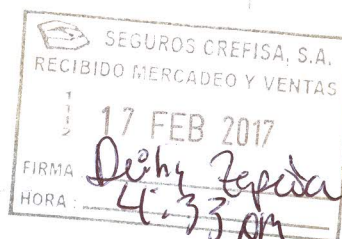 SEGUROS CREFISA, S.A.
RECIBIDO MERCADEO Y VENTAS
17 FEB 2017
FIRMA
HORA: 4:33 pm